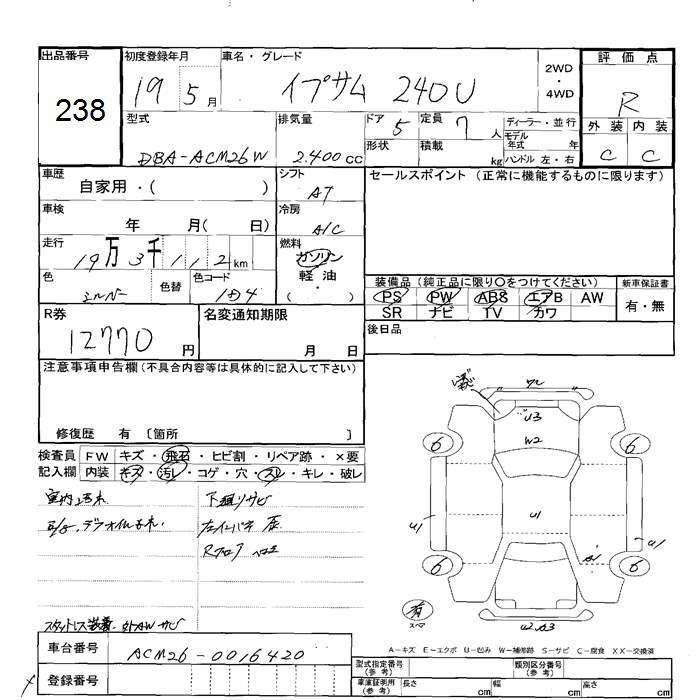 出品番号
238
初度登録年月
19 5月
車名・グレード
イプサム 240U
2WD
・
4WD
評価点
R
外装 内装
C C
型式
DBA-ACM26W
排気量
2.400cc
ドア 5
定員 7人
形状
積載 kg
ディーラー・並行
モデル年式 年
ハンドル 左・右
車歴
自家用・( )
車検
年 月( 日)
走行
19万3千112km
色
シルバー
色替
色コード
1D4
シフト
AT
冷房
A/C
燃料
ガソリン
軽油
( )
セールスポイント (正常に機能するものに限ります)
装備品 (純正品に限り○をつけてください)
PS PW ABS エアB AW
SR ナビ TV カワ
新車保証書
有・無
R券
12770円
名変通知期限
月 日
後日品
注意事項申告欄(不具合内容等は具体的に記入して下さい)
修復歴 有 〔箇所 〕
検査員記入欄
FW キズ・飛石・ヒビ割・リペア跡・×要
内装 キズ・汚レ・コゲ・穴・スレ・キレ・破レ
室内汚れ
下廻りサビ
スタットレス装着. 外AWサビ
U3
W2
U1
U1
U1
A1
6
6
6
6
有
スペア
A-キズ E-エクボ U-凹み W-補修跡 S-サビ C-腐食 XX-交換済
車台番号
ACM26-0016420
登録番号
型式指定番号(参考)
類別区分番号(参考)
車庫証明用(参考)
長さ cm
幅 cm
高さ cm